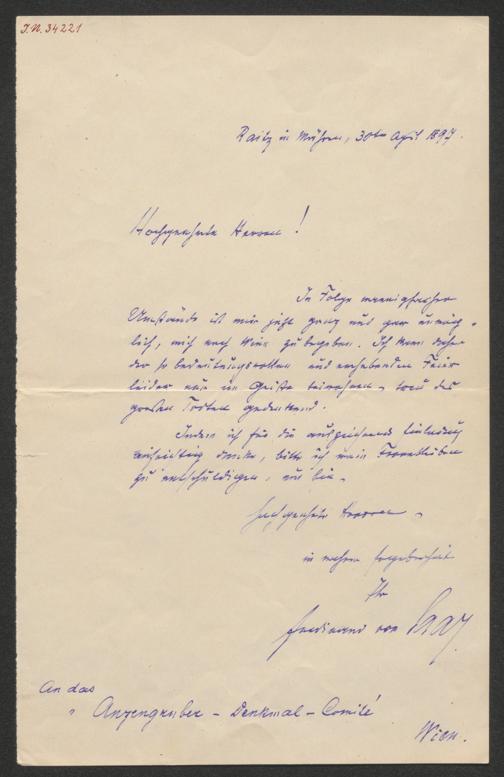 J.N. 34221
Raitz in Mähren, 30ten April 1897.
Hochgeehrte Herren!
In Folge mannigfacher
Umstände ist mir jetzt ganz und gar unmög-
lich, mich nach Wien zu begeben. Ich kann daher
der so bedeutungsvollen und erhebenden Feier
leider nur im Geiste beiwohnen – treu des
großen Todten gedenkend.
Indem ich für die auszeichnende Einladung
aufrichtig danke, bitte ich mein Fernbleiben
zu entschuldigen, und bin –
hochgeehrte Herren –
in wahrer Ergebenheit
Ihr
Ferdinand von Saar
An das
"Anzengruber – Denkmal – Comité
Wien.